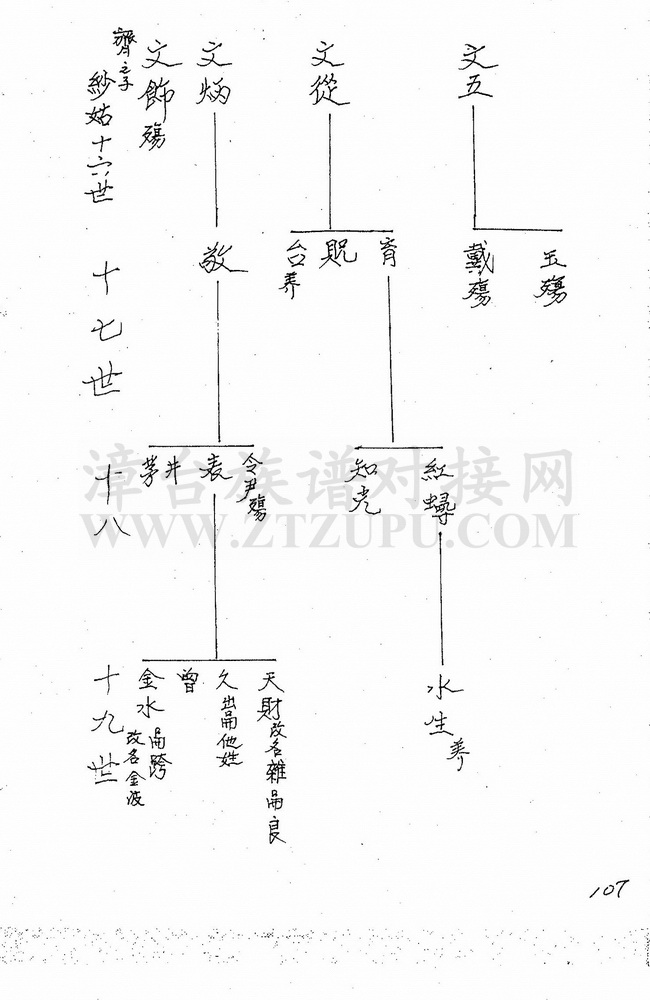 文五
文從
文炳
文飾殤
齊享
紗姑十六世
玉殤
戴殤
育
貺
台养
敬
十七世
紅蟳
知先
令尹殤
表
井
茅
十八
漳台族谱对接网
WWW.ZTZUPU.COM
水生养
天財改名雜帛良
久出帛他姓
曾
金水帛跨
改名金波
十九世
107